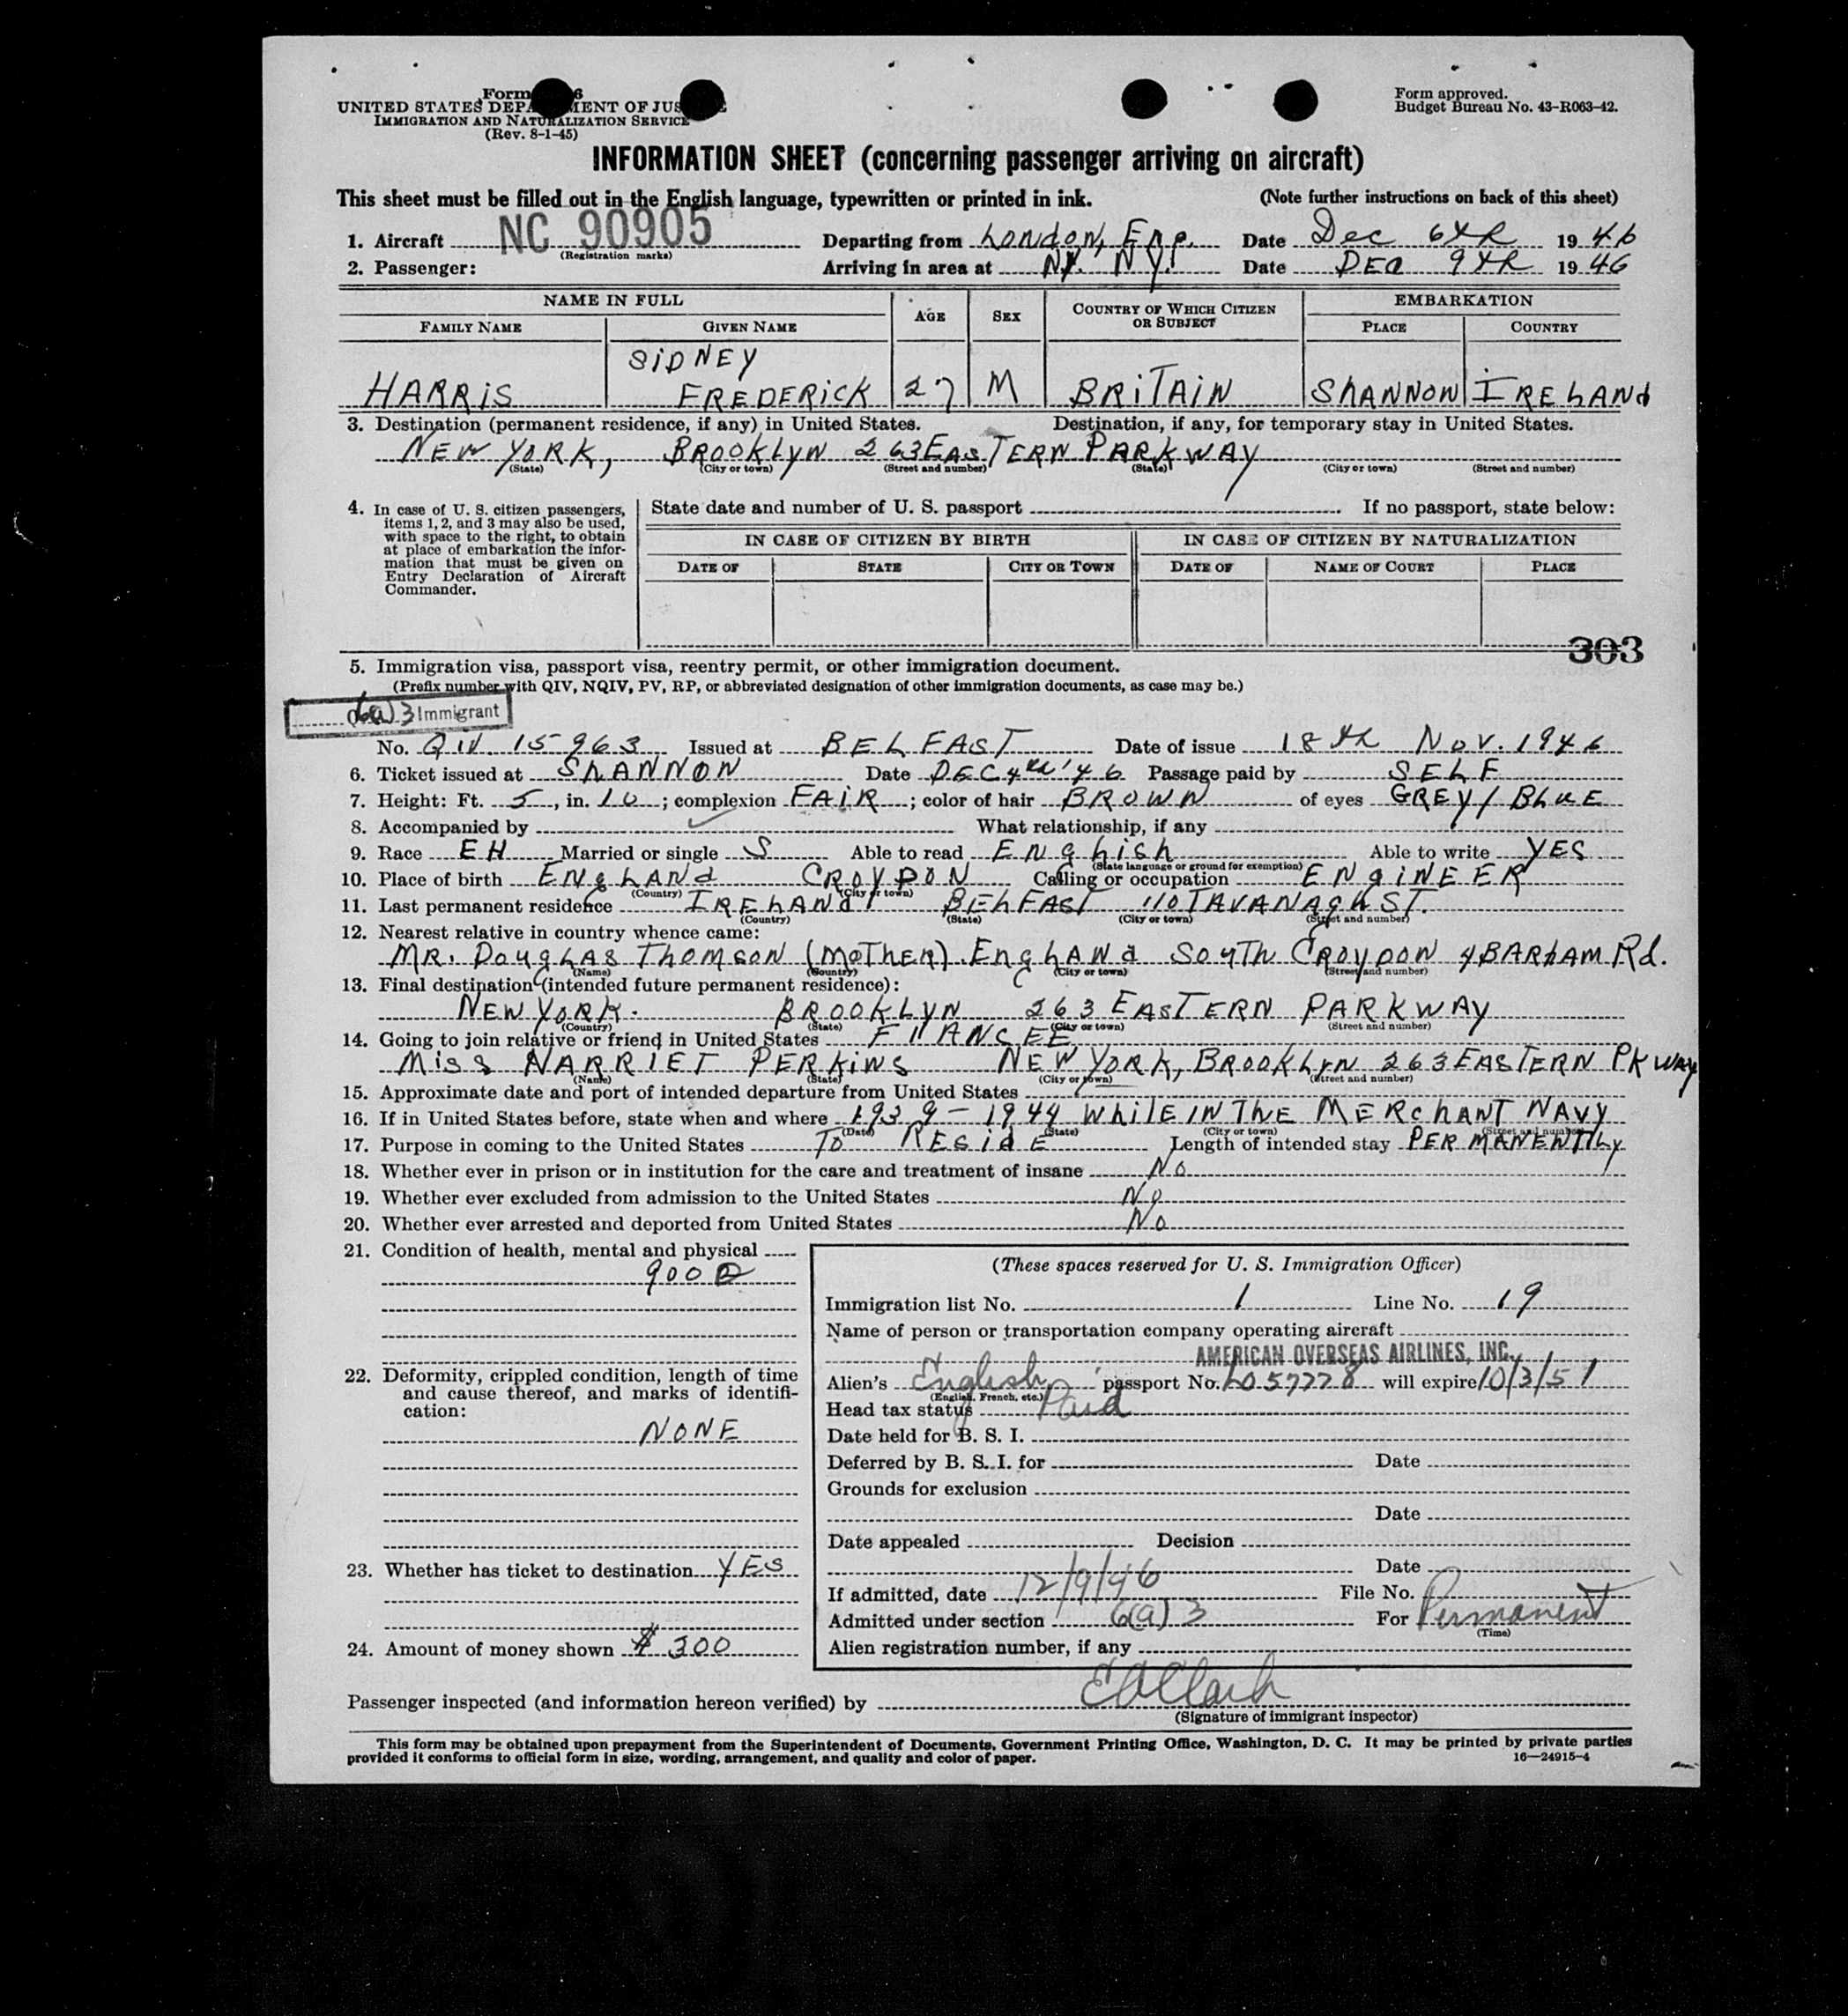 Form 6
UNITED STATES DEPA MENT OF JUS
IMMIGRATION AND NATURALIZATION SERVICE
(Rev. 8-1-45)
Form approved.
Budget Bureau No. 43-R063-42.
INFORMATION SHEET (concerning passenger arriving on aircraft)
This sheet must be filled out in the English language, typewritten or printed in ink. (Note further instructions on back of this sheet)
1. Aircraft NC 90905 Departing from London, Eng. Date Dec 6th 1946
(Registration marks)
2. Passenger: Arriving in area at NY. NY. Date DEC 9th 1946
NAME IN FULL AGE SEX COUNTRY OF WHICH CITIZEN OR SUBJECT EMBARKATION
FAMILY NAME GIVEN NAME PLACE COUNTRY
SIDNEY
HARRIS FREDERICK 27 M BRITAIN SHANNON IRELANd
3. Destination (permanent residence, if any) in United States. Destination, if any, for temporary stay in United States.
NEW YORK, BROOKLYN 263 EASTERN PARKWAY
(State) (City or town) (Street and number) (State) (City or town) (Street and number)
4. In case of U. S. citizen passengers, items 1, 2, and 3 may also be used, with space to the right, to obtain at place of embarkation the information that must be given on Entry Declaration of Aircraft Commander.
State date and number of U. S. passport If no passport, state below:
IN CASE OF CITIZEN BY BIRTH IN CASE OF CITIZEN BY NATURALIZATION
DATE OF STATE CITY OR TOWN DATE OF NAME OF COURT PLACE
303
5. Immigration visa, passport visa, reentry permit, or other immigration document.
(Prefix number with QIV, NQIV, PV, RP, or abbreviated designation of other immigration documents, as case may be.)
6(a)3 Immigrant
No. QIV. 15963 Issued at BELFAST Date of issue 18th Nov. 1946
6. Ticket issued at SHANNON Date DEC 4th '46 Passage paid by SELF
7. Height: Ft. 5, in. 10; complexion FAIR; color of hair BROWN of eyes GREY/BLUE
8. Accompanied by What relationship, if any
9. Race EH Married or single S Able to read ENglish Able to write YES
(State language or ground for exemption)
10. Place of birth ENgLANd CROYDON Calling or occupation ENgINEER
(Country) (City or town)
11. Last permanent residence IRELANd BELFAST 110 TAVANAGH ST.
(Country) (State) (City or town) (Street and number)
12. Nearest relative in country whence came:
MR. DOUGLAS THOMSON (MOTHER) ENgLANd SOUTH CROYDON 4 BARHAM Rd.
(Name) (Country) (City or town) (Street and number)
13. Final destination (intended future permanent residence):
NEW YORK. BROOKLYN 263 EASTERN PARKWAY
(Country) (State) (City or town) (Street and number)
14. Going to join relative or friend in United States FIANCEE
MISS HARRIET PERKINS NEW YORK, BROOKLYN 263 EASTERN PKWAY
(Name) (State) (City or town) (Street and number)
15. Approximate date and port of intended departure from United States
16. If in United States before, state when and where 1939 - 1944 WhILE IN THE MERChANT NAVY
(Date) (State) (City or town) (Street and number)
17. Purpose in coming to the United States TO RESIdE Length of intended stay PERMANENTLY
18. Whether ever in prison or in institution for the care and treatment of insane No
19. Whether ever excluded from admission to the United States No
20. Whether ever arrested and deported from United States No
21. Condition of health, mental and physical
gOOD
22. Deformity, crippled condition, length of time and cause thereof, and marks of identification:
NONE
23. Whether has ticket to destination YES
24. Amount of money shown $ 300
(These spaces reserved for U. S. Immigration Officer)
Immigration list No. 1 Line No. 19
Name of person or transportation company operating aircraft
AMERICAN OVERSEAS AIRLINES, INC.
Alien's English passport No. L057778 will expire 10/3/51
(English, French, etc.)
Head tax status Paid
Date held for B. S. I.
Deferred by B. S. I. for Date
Grounds for exclusion
Date
Date appealed Decision
Date
If admitted, date 12/9/46 File No.
Admitted under section 6(a)3 For Permanent
(Time)
Alien registration number, if any
Passenger inspected (and information hereon verified) by
(Signature of immigrant inspector)
This form may be obtained upon prepayment from the Superintendent of Documents, Government Printing Office, Washington, D. C. It may be printed by private parties
provided it conforms to official form in size, wording, arrangement, and quality and color of paper. 16—24915-4